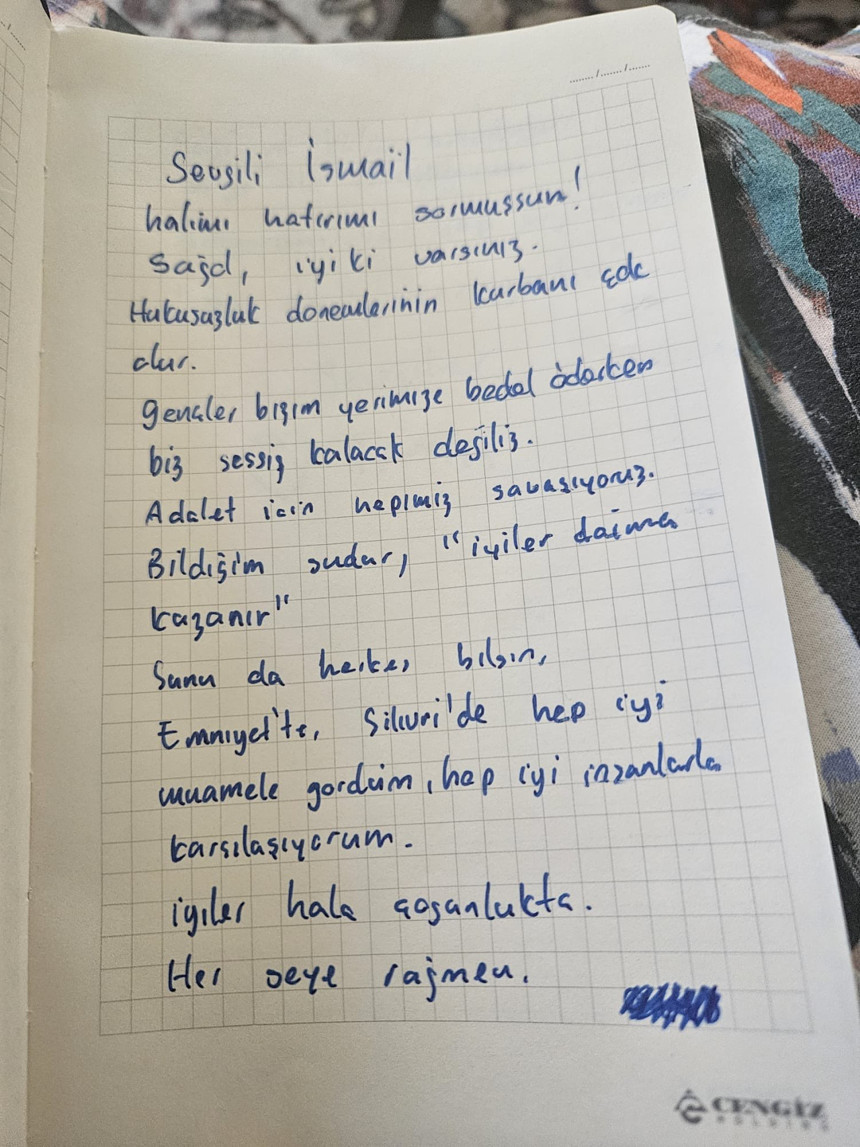 ....../....../......
Sevgili İsmail
halimi hatırımı sormuşsun!
Sağol, iyi ki varsınız.
Hukusuzluk donemlerinin kurbanı çok
olur.
Gençler bizim yerimize bedel öderken
biz sessiz kalacak değiliz.
Adalet icin hepimiz savasıyoruz.
Bildiğim sudur, "iyiler daima
kazanır"
Sunu da herkes bilsin,
Emniyet'te, Silivri'de hep iyi
muamele gordüm, hep iyi insanlarla
karsılaşıyorum.
iyiler hala çoğunlukta.
Her seye rağmen.
CENGİZ
HOLDİNG